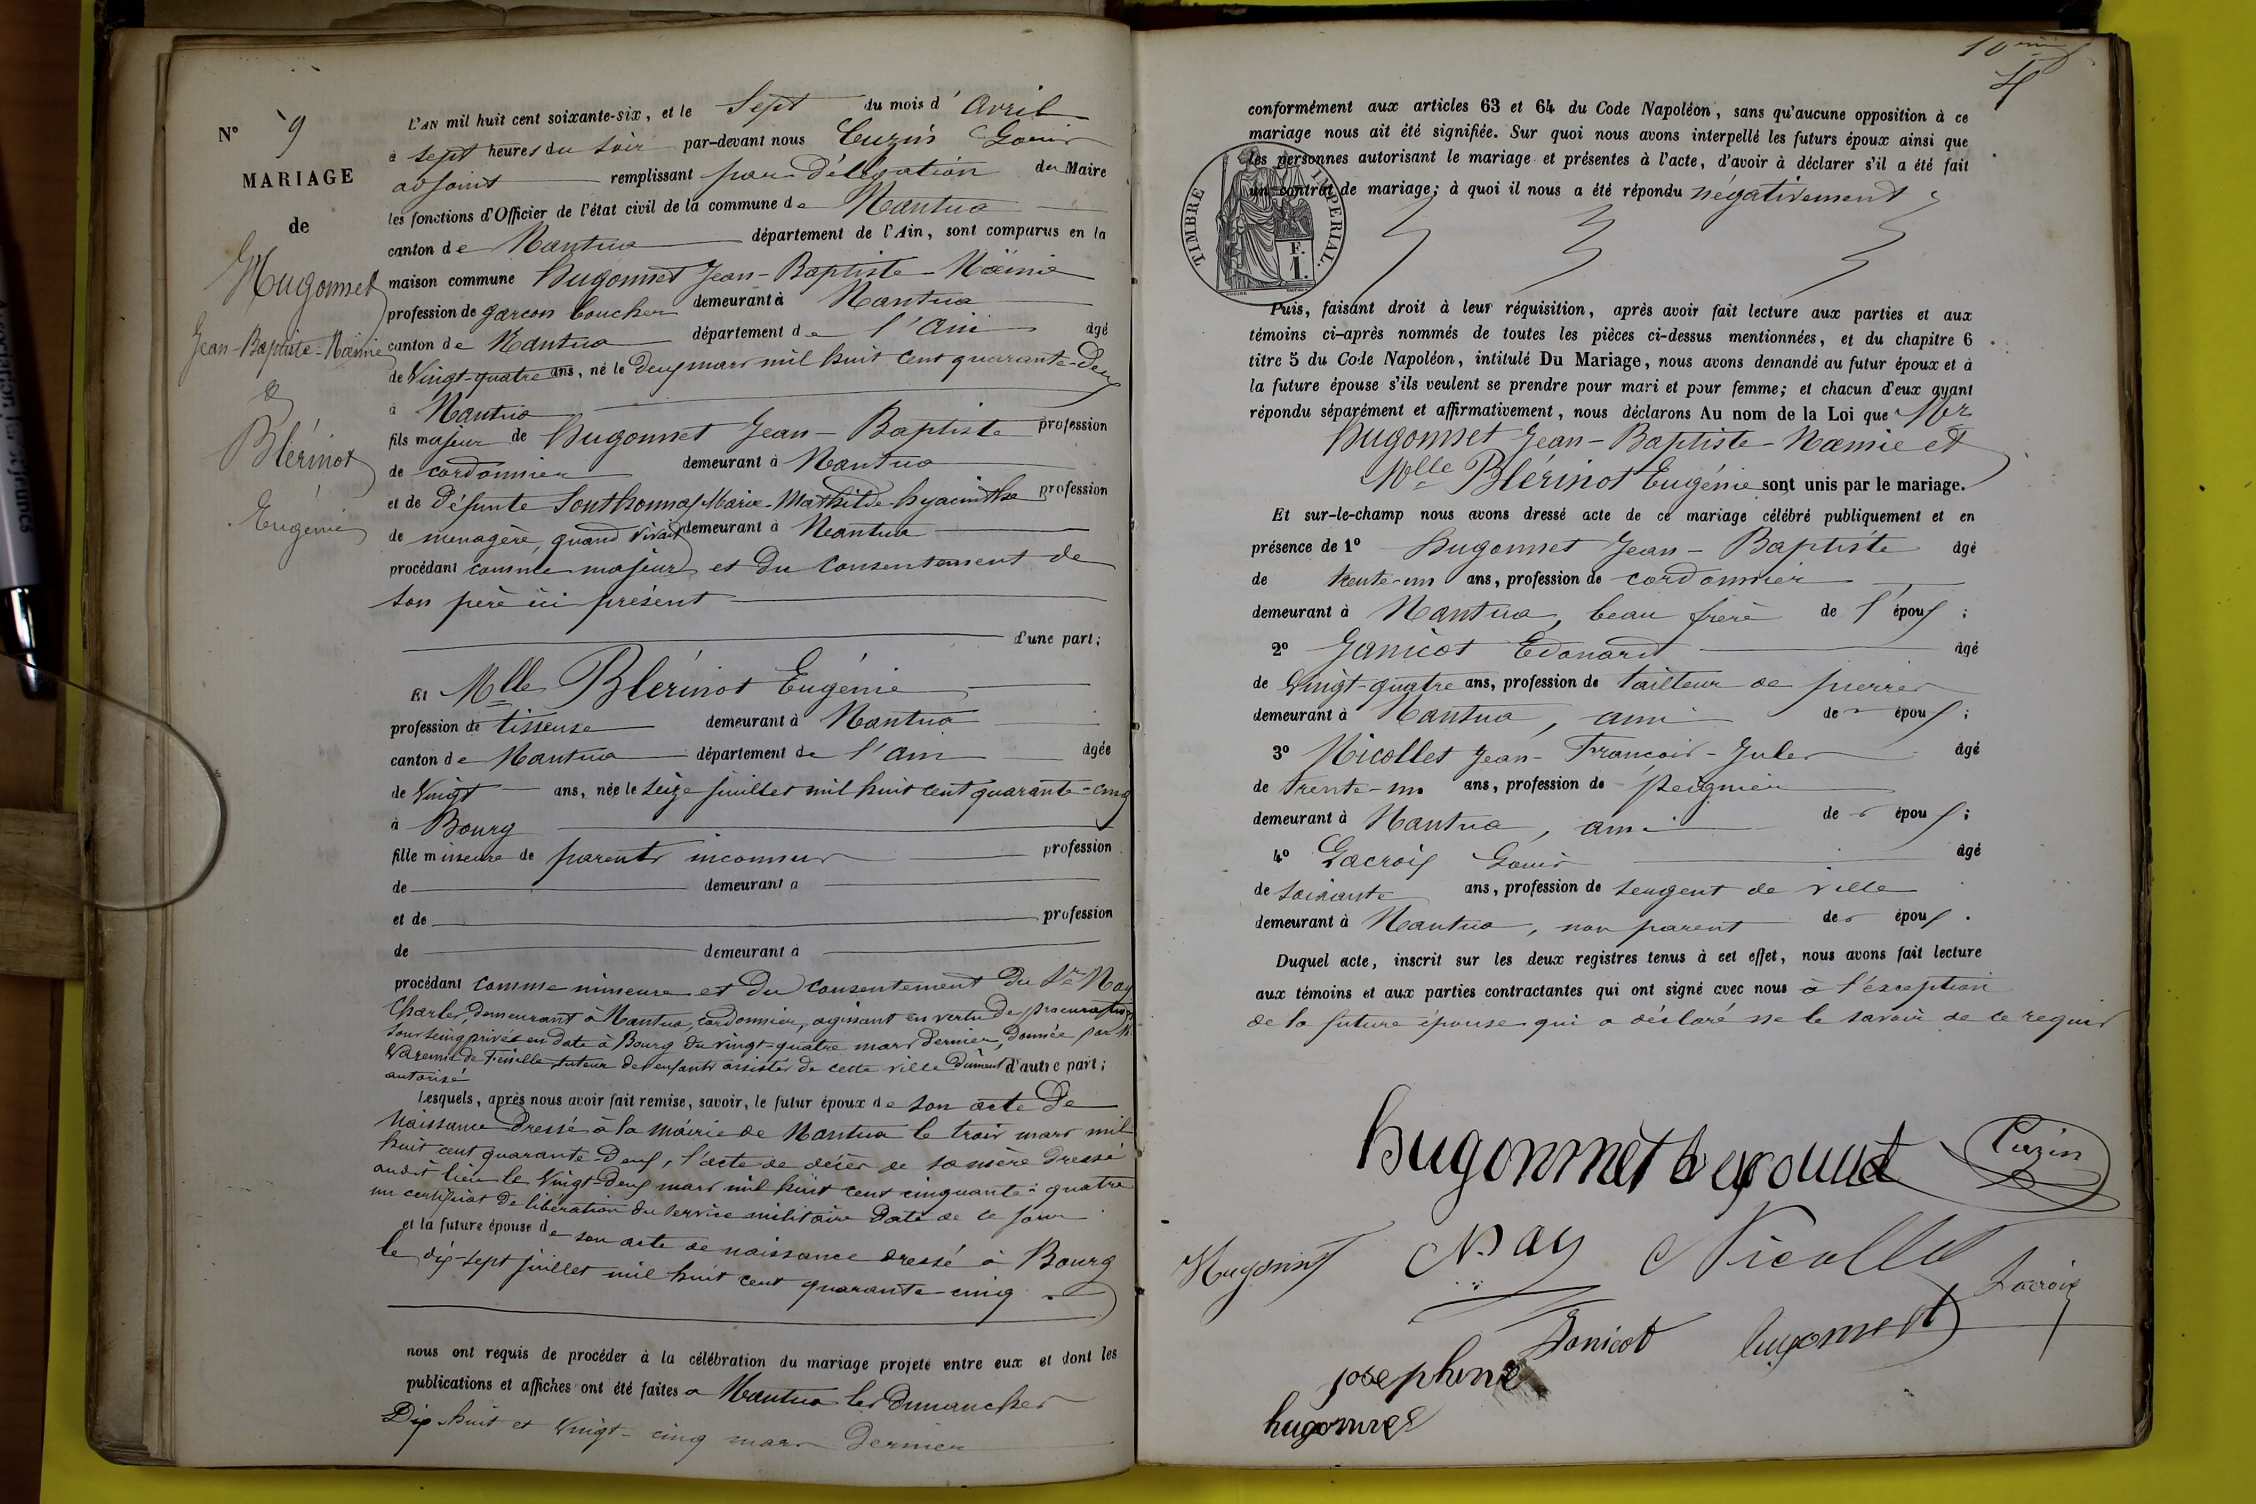 N° 9
MARIAGE
de
Hugonnet
Jean-Baptiste-Noëmie
&
Blérinot
Eugénie
L'AN mil huit cent soixante-six, et le Sept du mois d' avril
à sept heures du soir par-devant nous Cuzin Louis
adjoint remplissant par délégation du Maire
les fonctions d'Officier de l'état civil de la commune de Nantua
canton de Nantua département de l'Ain, sont comparus en la
maison commune Hugonnet Jean-Baptiste-Noëmie
profession de garcon boucher demeurant à Nantua
canton de Nantua département de l'Ain âgé
de Vingt-quatre ans, né le deux mars mil huit cent quarante-deux
à Nantua
fils majeur de Hugonnet Jean-Baptiste profession
de cordonnier demeurant à Nantua
et de défunte Southonnax Marie-Mathilde-hyacinthe profession
de menagère, quand vivait demeurant à Nantua
procédant comme majeur et du consentement de
son père ici présent
d'une part;
Et Mlle Blérinot Eugénie
profession de tisseuse demeurant à Nantua
canton de Nantua département de l'ain âgée
de Vingt ans, née le seize juillet mil huit cent quarante-cinq
à Bourg
fille mineure de parents inconnus profession
de demeurant a
et de profession
de demeurant à
procédant comme mineure et du consentement du Sr Nay
Charles, demeurant à Nantua, cordonnier, agissant en vertu de procuration
sous seing privés en date à Bourg du vingt-quatre mars dernier, donnée par Mr
Varenne de Fenille tuteur des enfants assistés de cette ville dûment d'autre part;
autorisé
Lesquels, après nous avoir fait remise, savoir, le futur époux de son acte de
Naissance dressé à la mairie de Nantua le trois mars mil
huit cent quarante-deux, l'acte de décès de sa mère dressé
audit lieu le vingt-deux mars mil huit cent cinquante-quatre
un certificat de libération du service militaire daté de ce jour
et la future épouse de son acte de naissance dressé à Bourg
le dix-sept juillet mil huit cent quarante-cinq.
nous ont requis de procéder à la célébration du mariage projeté entre eux et dont les
publications et affiches ont été faites a Nantua les dimanches
Dix-huit et vingt-cinq mars dernier
conformément aux articles 63 et 64 du Code Napoléon, sans qu'aucune opposition à ce
mariage nous ait été signifiée. Sur quoi nous avons interpellé les futurs époux ainsi que
les personnes autorisant le mariage et présentes à l'acte, d'avoir à déclarer s'il a été fait
un contrat de mariage; à quoi il nous a été répondu négativement
TIMBRE IMPERIAL.
F.
1.
Puis, faisant droit à leur réquisition, après avoir fait lecture aux parties et aux
témoins ci-après nommés de toutes les pièces ci-dessus mentionnées, et du chapitre 6
titre 5 du Code Napoléon, intitulé Du Mariage, nous avons demandé au futur époux et à
la future épouse s'ils veulent se prendre pour mari et pour femme; et chacun d'eux ayant
répondu séparément et affirmativement, nous déclarons Au nom de la Loi que Mr
Hugonnet Jean-Baptiste-Noemie et
Mlle Blérinot Eugénie sont unis par le mariage.
Et sur-le-champ nous avons dressé acte de ce mariage célébré publiquement et en
présence de 1° Hugonnet Jean-Baptiste âgé
de trente-un ans, profession de cordonnier
demeurant à Nantua, beau frère de l'époux;
2° Janicot Edouard âgé
de Vingt-quatre ans, profession de tailleur de pierres
demeurant à Nantua, ami des époux;
3° Nicollet Jean-François-Jules âgé
de trente-un ans, profession de peignier
demeurant à Nantua, ami des époux;
4° Lacroix Louis âgé
de soixante ans, profession de sergent de ville
demeurant à Nantua, non parent des époux.
Duquel acte, inscrit sur les deux registres tenus à cet effet, nous avons fait lecture
aux témoins et aux parties contractantes qui ont signé avec nous à l'éxception
de la future épouse qui a déclaré ne le savoir de ce requis
Cuzin
Hugonnet Nay Nicollet
Lacroix
Janicot hugonnet
josephine
hugonnet